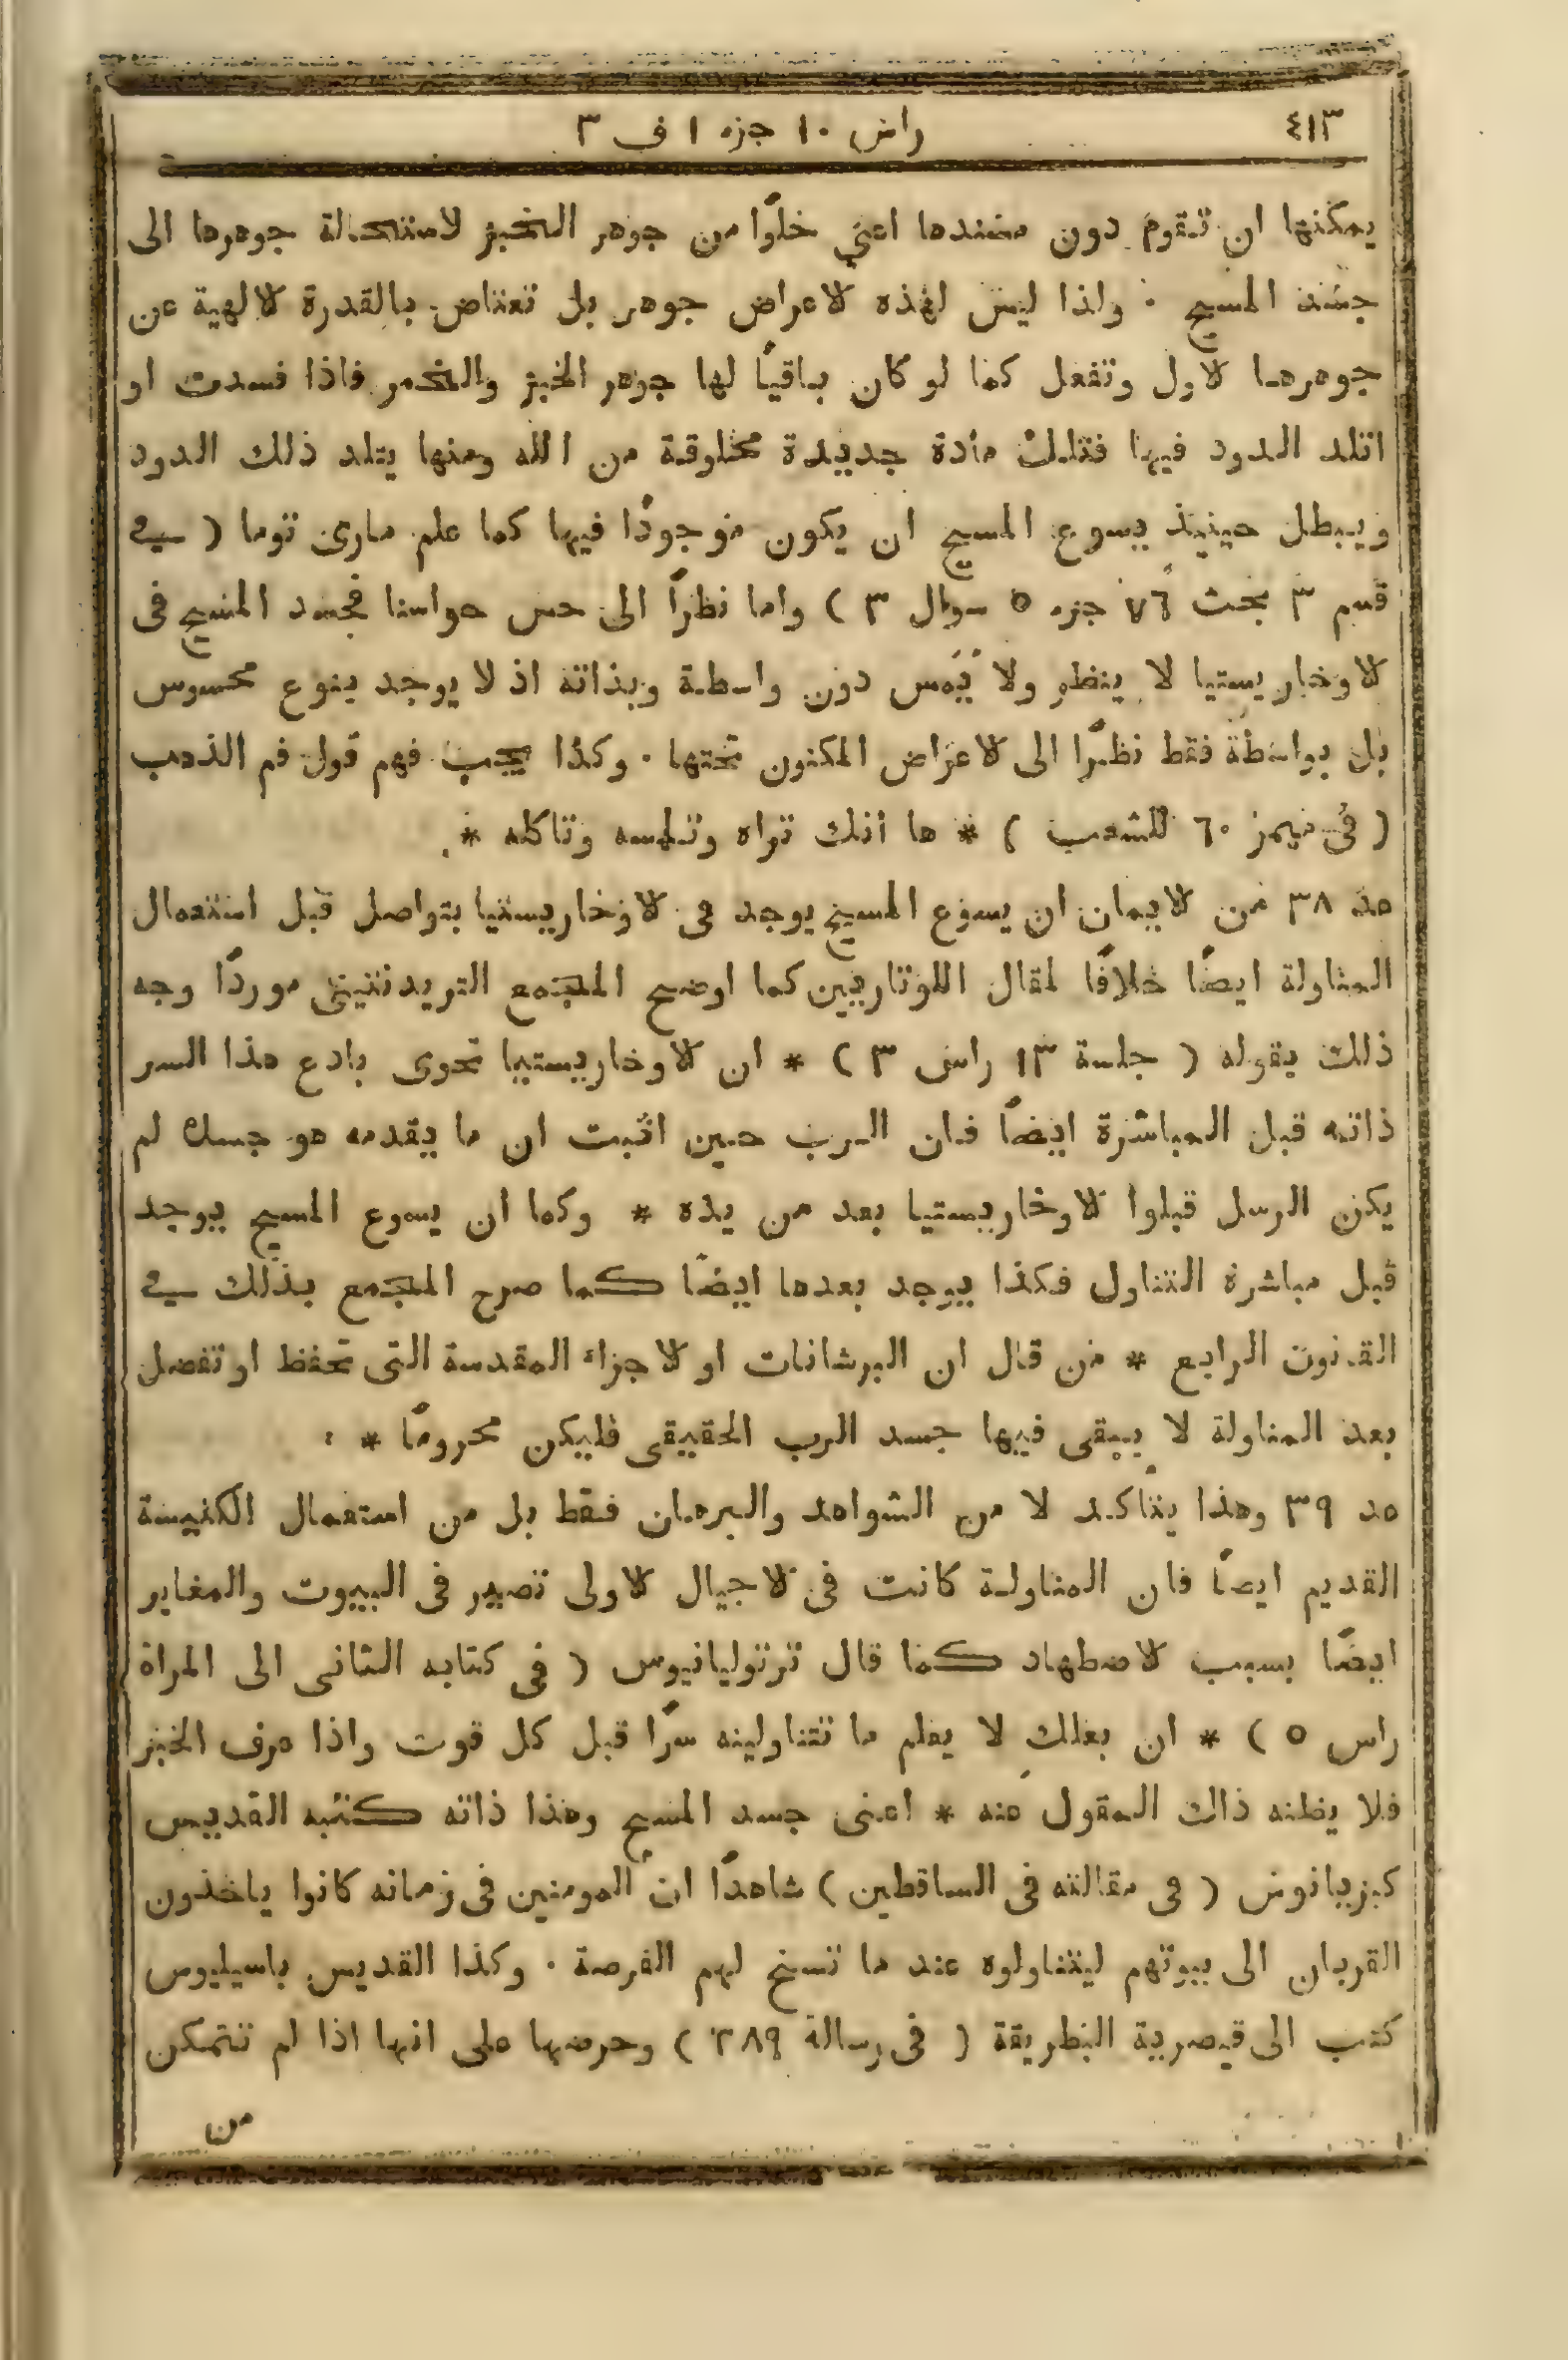 ٤١٣ راس ١٠ جزء ١ ف ٣
يمكنها ان تقوم دون مسندها اعني خلوًا من جوهر الخبز لاستحالة جوهرها الى
جسد المسيح ٠ ولذا ليس لهذه لاعراض جوهر بل تعتاض بالقدرة لالهية عن
جوهرها لاول وتفعل كما لو كان باقيًا لها جوهر الخبز والخمر فاذا فسدت او
اتلد الدود فيها فتلك مادة جديدة مخلوقة من الله ومنها يتلد ذلك الدود
ويبطل حينيذ يسوع المسيح ان يكون موجودًا فيها كما علم مارى توما ( في
قسم ٣ بحث ٧٦ جزء ٥ سوال ٣ ) واما نظرًا الى حس حواسنا فجسد المسيح فى
لاوخاريستيا لا ينظر ولا يُمَس دون واسطة وبذاته اذ لا يوجد بنوع محسوس
بل بواسطة فقط نظرًا الى لاعراض المكنون تحتها ٠ وكذا يجب فهم قول فم الذهب
( فى ميمر ٦٠ للشعب ) * ها انك تراه وتلمسه وتاكله *
عد ٣٨ من لايمان ان يسوع المسيح يوجد فى لاوخاريستيا بتواصل قبل استعمال
المناولة ايضًا خلافًا لمقال اللوتاريين كما اوضح المجمع التريدنتينى موردًا وجه
ذلك بقوله ( جلسة ١٣ راس ٣ ) * ان لاوخاريستيا تحوى بادع هذا السر
ذاته قبل المباشرة ايضًا فان الرب حين اثبت ان ما يقدمه هو جسده لم
يكن الرسل قبلوا لاوخاريستيا بعد من يده * وكما ان يسوع المسيح يوجد
قبل مباشرة التناول فكذا يوجد بعدها ايضًا كما صرح المجمع بذلك في
القانون الرابع * من قال ان البرشانات او لاجزاء المقدسة التى تحفظ او تفضل
بعد المناولة لا يبقى فيها جسد الرب الحقيقى فليكن محرومًا *
عد ٣٩ وهذا يتاكد لا من الشواهد والبرهان فقط بل من استعمال الكنيسة
القديم ايضًا فان المناولة كانت فى لاجيال لاولى تصير فى البيوت والمغاير
ايضًا بسبب لاضطهاد كما قال ترتوليانيوس ( فى كتابه الثانى الى المراة
راس ٥ ) * ان بعلك لا يعلم ما تتناولينه سرًا قبل كل قوت واذا عرف الخبز
فلا يظنه ذاك المقول عنه * اعنى جسد المسيح وهذا ذاته كتبه القديس
كبريانوس ( فى مقالته فى الساقطين ) شاهدًا ان المومنين فى زمانه كانوا ياخذون
القربان الى بيوتهم ليتناولوه عند ما تسنح لهم الفرصة ٠ وكذا القديس باسيليوس
كتب الى قيصرية البطريقة ( فى رسالة ٢٨٩ ) وحرضها على انها اذا لم تتمكن
من